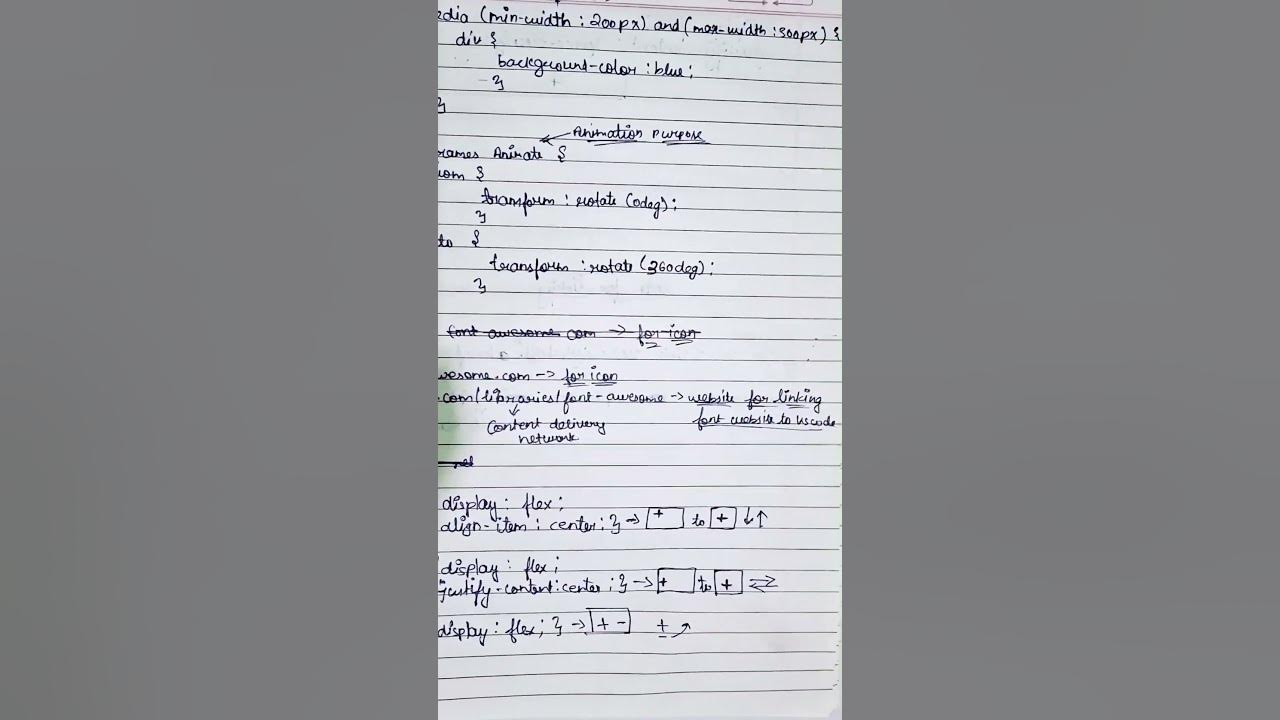 edia (min-width : 200px) and (max-width : 300px) {
div {
background-color : blue;
}
}
Animation purpose
rames Animate {
rom {
transform : rotate (0deg);
}
to {
transform : rotate (360deg);
}
font awesome com -> for icon
wesome.com -> for icon
.com/libraries/font-awesome -> website for linking
font website to vscode
Content delivery
network
display : flex;
align-item : center; } -> + to + ↓↑
display : flex;
justify-content : center; } -> + to + ⇄
display : flex; } -> + - +